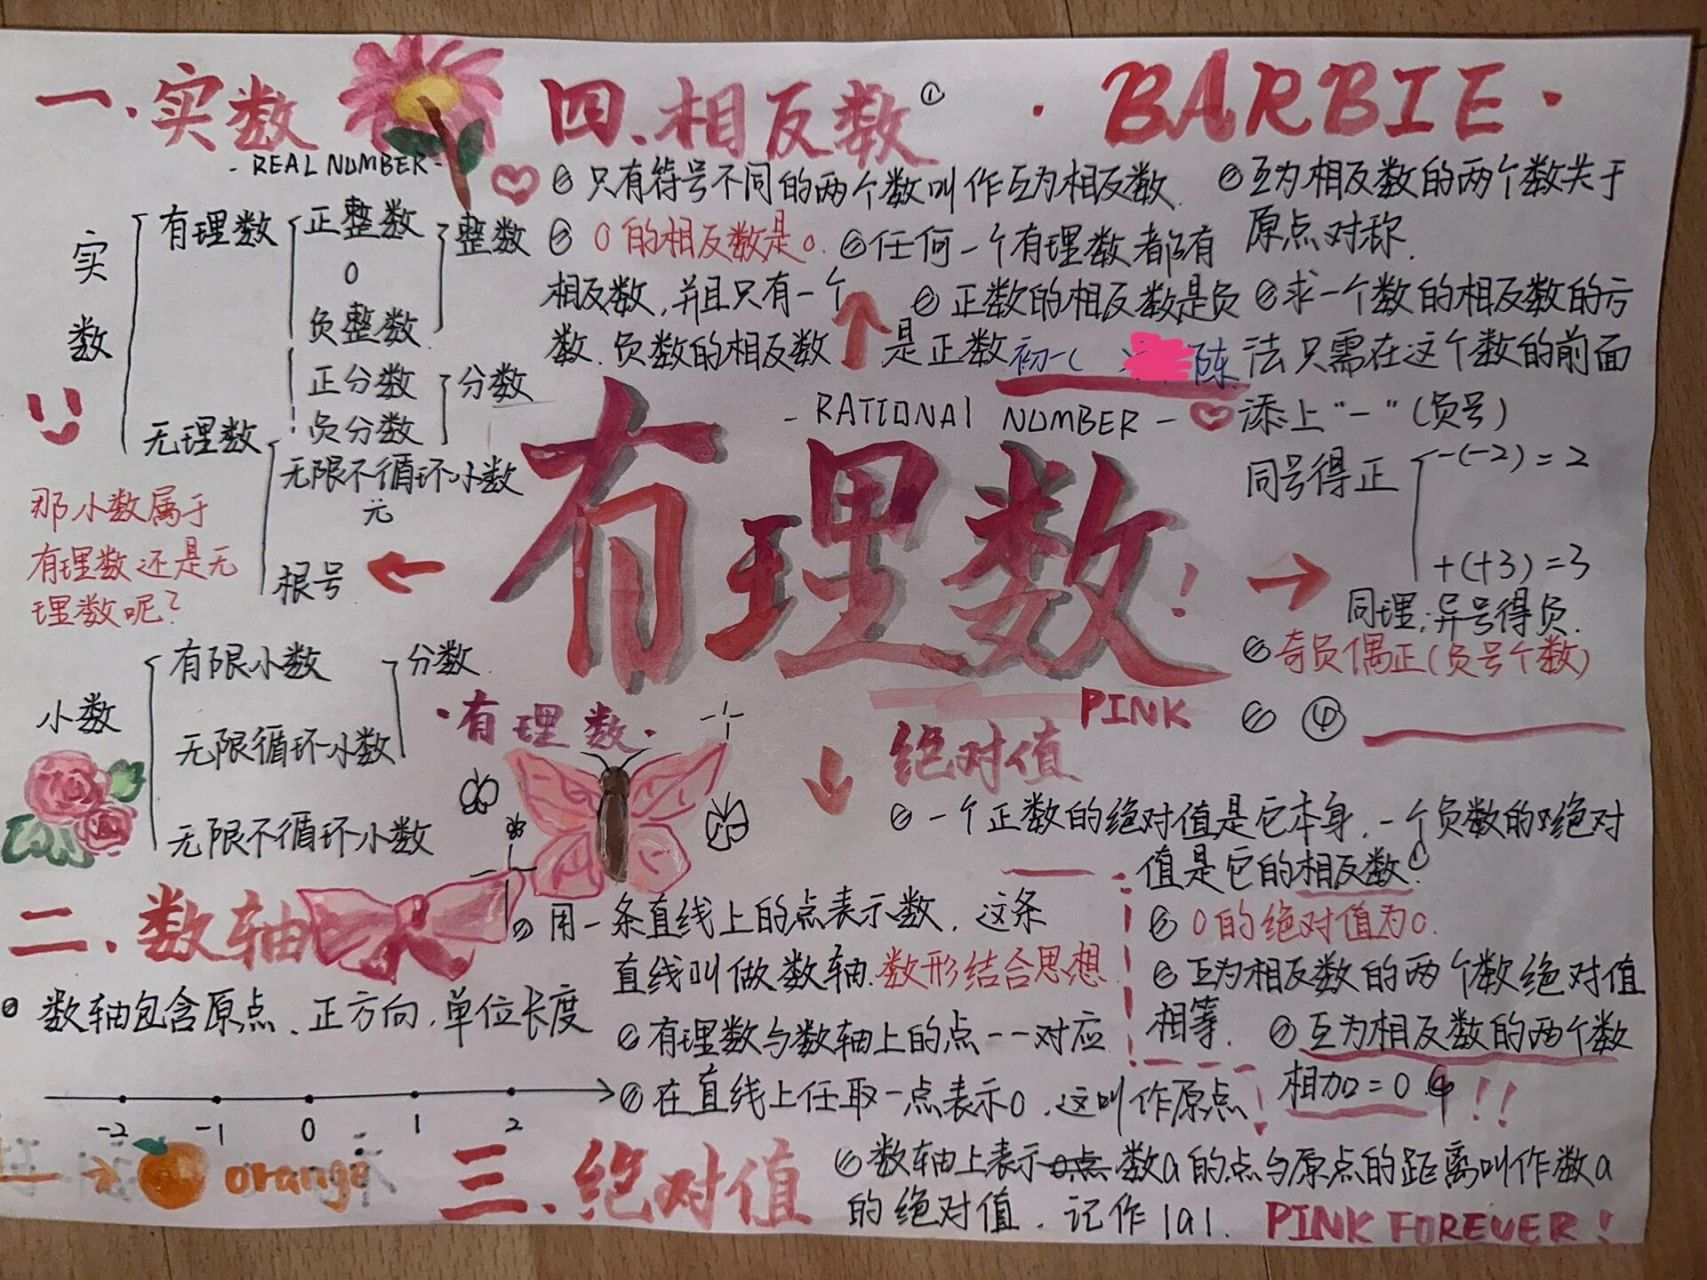 一.实数
- REAL NUMBER -
实数
有理数
正整数
0
负整数
整数
正分数
负分数
分数
无理数
无限不循环小数
元
根号
那小数属于
有理数还是无
理数呢?
小数
有限小数
无限循环小数
分数
无限不循环小数
四.相反数①
· BARBIE ·
只有符号不同的两个数叫作互为相反数
0的相反数是0. 任何一个有理数都有
相反数,并且只有一个
正数的相反数是负
数.负数的相反数是正数
初一(
陈
互为相反数的两个数关于
原点对称.
求一个数的相反数的方
法只需在这个数的前面
添上“-”(负号)
同号得正
-(-2)=2
+(+3)=3
同理;异号得负.
奇负偶正(负号个数)
④
- RATIONAL NUMBER -
有理数!
PINK
·有理数·
绝对值
一个正数的绝对值是它本身.一个负数的绝对
值是它的相反数.①
0的绝对值为0.
互为相反数的两个数绝对值
相等.
互为相反数的两个数
相加=0 ④!!!
二.数轴
数轴包含原点、正方向,单位长度
-2 -1 0 1 2
orange
用一条直线上的点表示数,这条
直线叫做数轴.数形结合思想
有理数与数轴上的点一一对应
在直线上任取一点表示0,这叫作原点
三.绝对值
数轴上表示0点数a的点与原点的距离叫作数a
的绝对值.记作|a|.
PINK FOREVER!